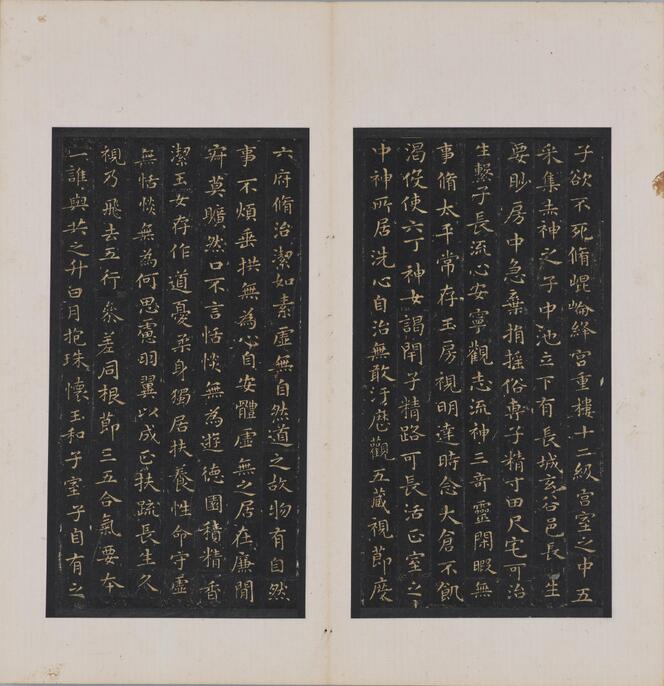 子欲不死脩崐崘絳宮重樓十二級宮室之中五
采集赤神之子中池立下有長城玄谷邑長生
要眇房中急棄捐搖俗專子精寸田尺宅可治
生繫子長流心安寧觀志流神三竒靈閑暇無
事脩太平常存玉房視明達時念大倉不飢
渴役使六丁神女謁閇子精路可長活正室之
中神所居洗心自治無敢汙歷觀五藏視節度
六府脩治潔如素虛無自然道之故物有自然
事不煩垂拱無為心自安體虛無之居在廉閒
㝛莫曠然口不言恬惔無為遊德園積精香
潔玉女存作道憂柔身獨居扶養性命守虛
無恬惔無為何思慮羽翼以成正扶疏長生久
視乃飛去五行參差同根節三五合氣要本
一誰與共之升日月抱珠懷玉和子室子自有之